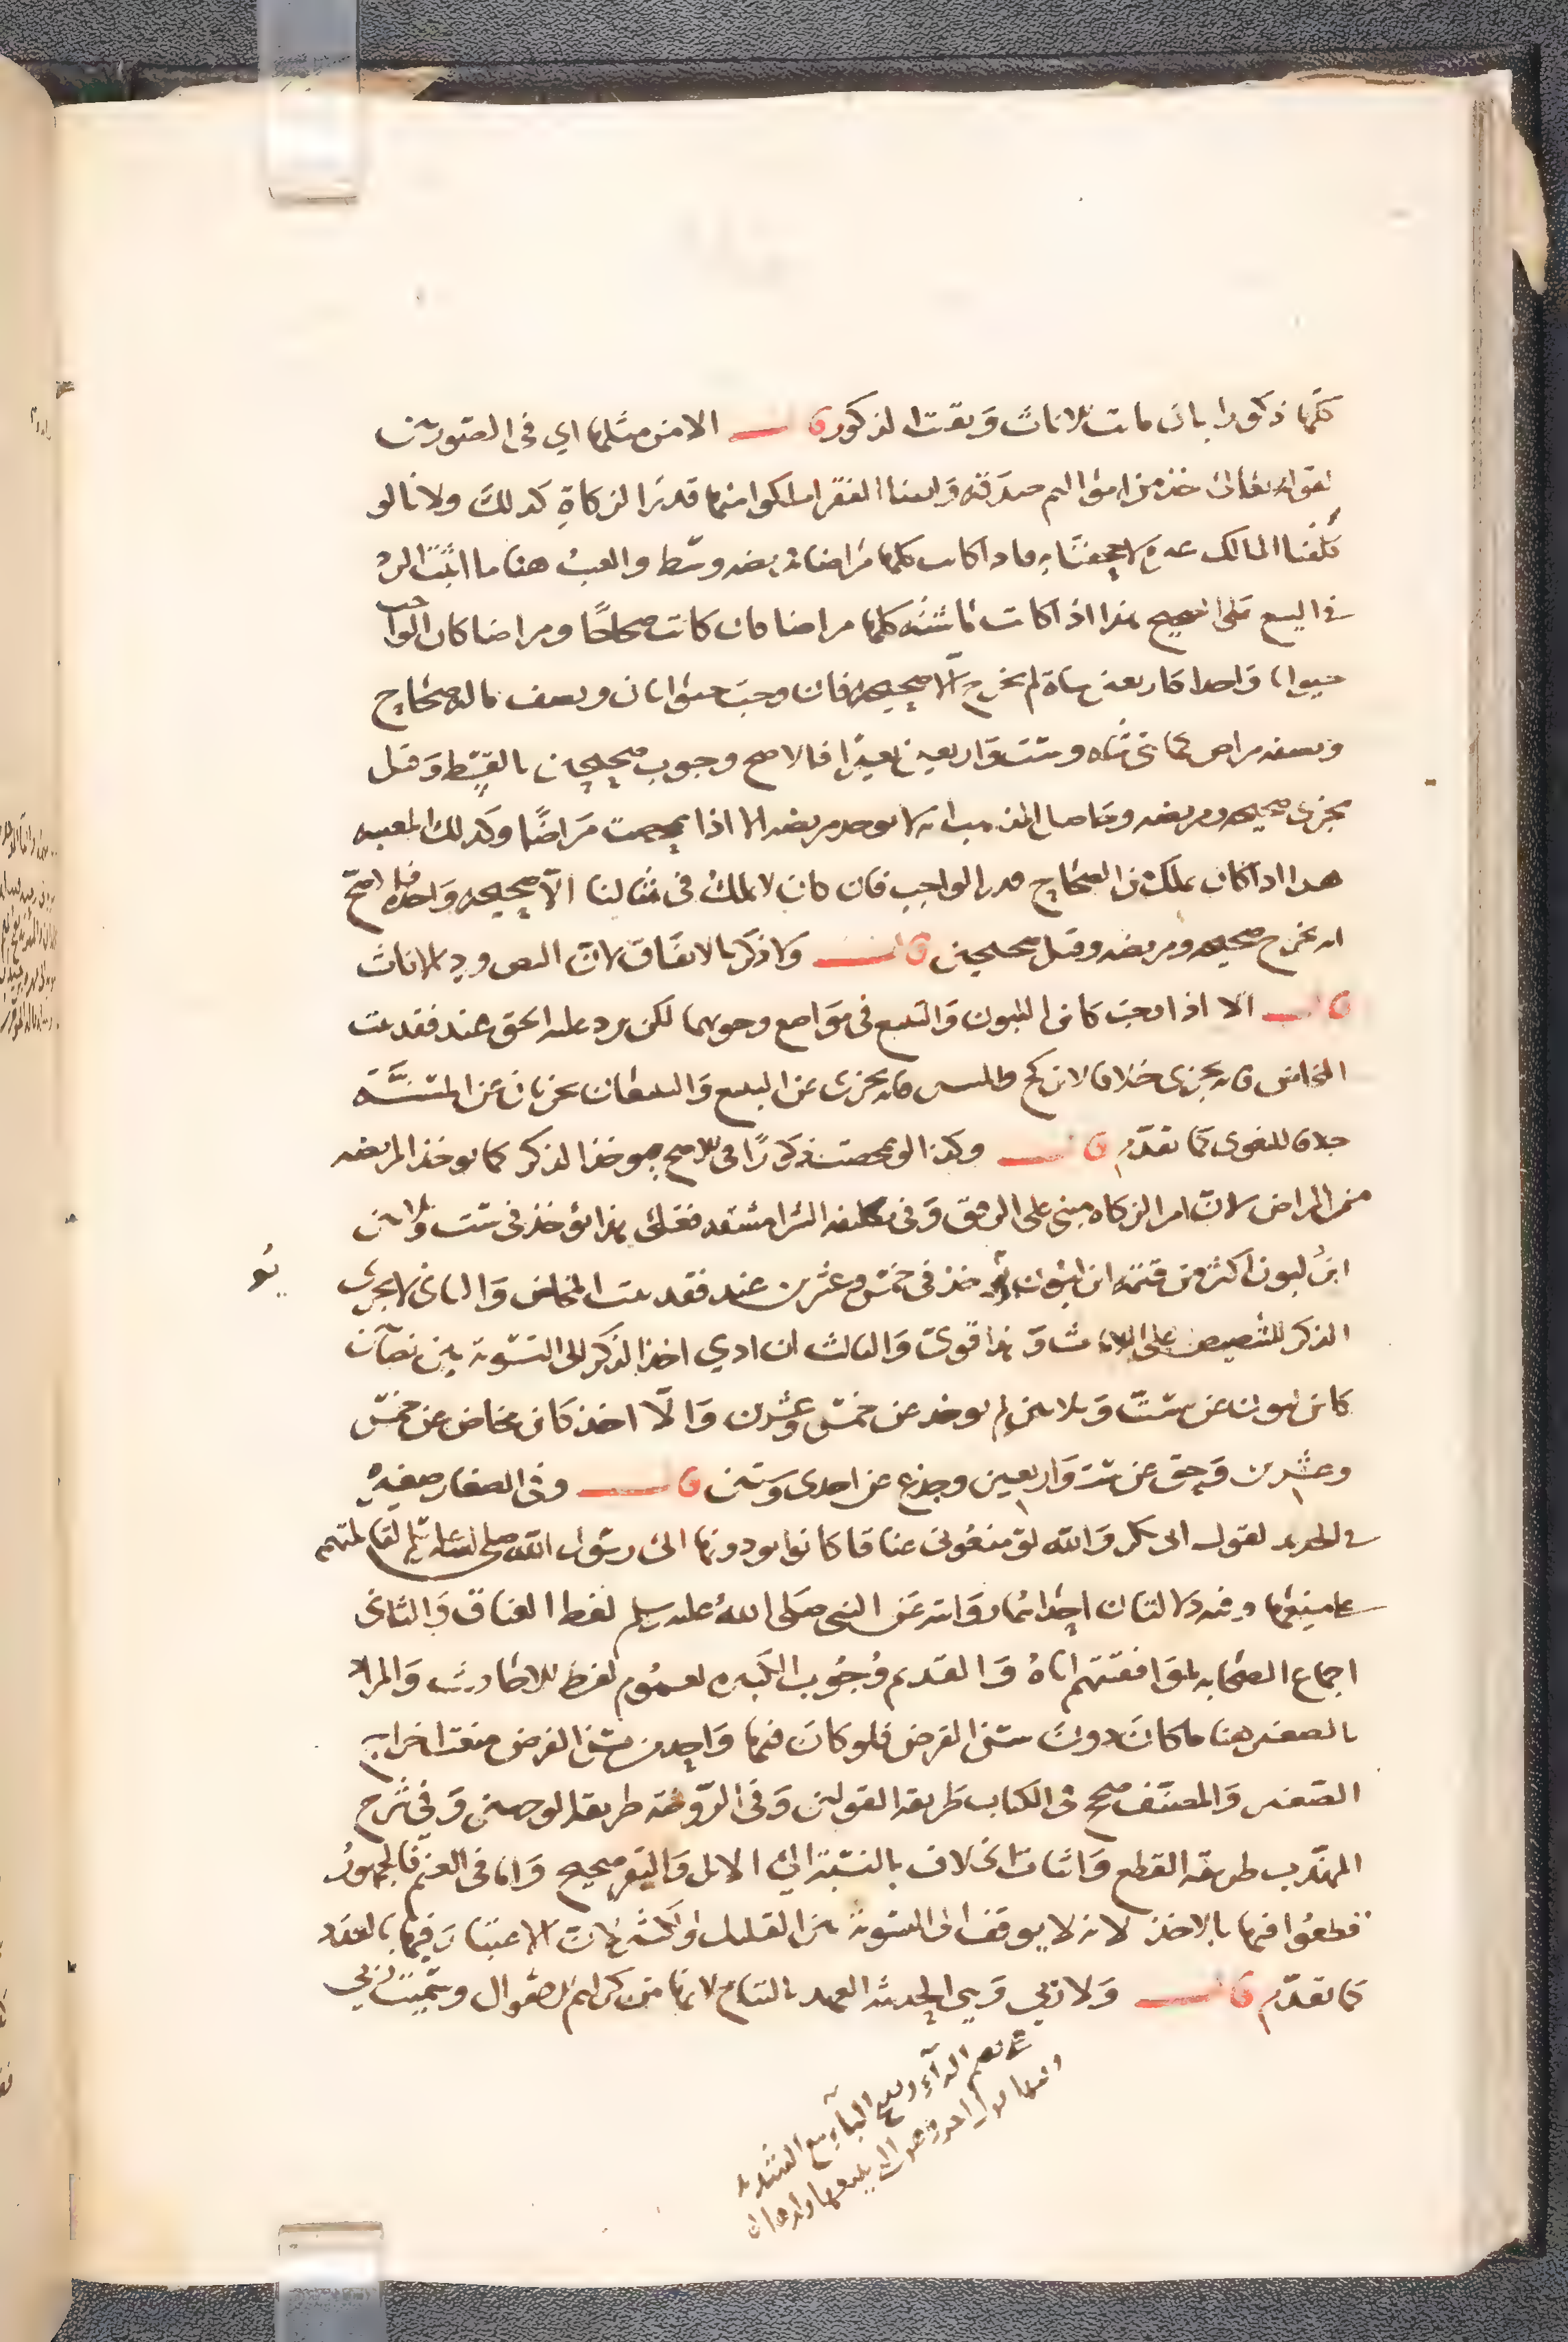 كلها ذكورا بان ماتت الاناث وبقيت الذكور قال الا من مثلها اي في الصورتين
لقوله تعالى خذ من اموالهم صدقة وايضا الفقرا ملكوا منها قدر الزكاة كذلك ولانا لو
كلفنا المالك غيره لاجحفنا به فاذا كانت كلها مراضا فمريضه وسط والعيب هنا ما اثبت الرد
في البيع على الصحيح هذا اذا كانت ماشيته كلها مراضا فان كانت صحاحا ومراضا كان الواجب
حيوانا واحدا كاربعين شاة لم يخرج الا صحيحه فان وجب حيوانان ونصف ماله صحاح
ونصفه مراض كمائتي شاه وست واربعين بعيرا فالاصح وجوب صحيحين بالقسط وقيل
يجزي صحيحه ومريضه وحاصل المذهب انه لا يوخذ مريضه الا اذا تمحضت مراضا وكذلك المعيبه
هذا اذا كان يملك من الصحاح قدر الواجب فان كان لا يملك في مثالنا الا صحيحه واحده فالاصح
انه يخرج صحيحه ومريضه وقيل صحيحين قال ولا ذكر بالاتفاق لان النص ورد بالاناث
قال الا اذا وجب كابن اللبون والتبيع في مواضع وجوبهما لكن يرد عليه الحق عند فقد بنت
المخاض فانه يجزي خلافا لابن كج والمسن فانه يجزي عن التبيع والتبيعان يجزيان عن المسنة
خلافا للبغوي كما تقدم قال وكذا لو تمحضت ذكورا في الاصح فيوخذ الذكر كما يوخذ المريضه
من المراض لان امر الزكاه مبني على الرفق وفي تكليفه الشرا مشقه فعلى هذا يؤخذ في ست وثلاثين
ابن لبون اكثر من قيمة ابن لبون يؤخذ في خمس وعشرين عند فقد بنت المخاض والثاني لا يجزي
الذكر للتنصيص على الاناث وهذا قوي والثالث ان ادي اخذ الذكر الى التسوية بين نصابين
كابن لبون عن ست وثلاثين لم يوخذ عن خمس وعشرين والا اخذ كابن مخاض عن خمس
وعشرين وحق عن ست واربعين وجذع عن احدى وستين قال وفي الصغار صغيره
في الجديد لقول ابي بكر والله لو منعوني عناقا كانوا يودونها الى رسول الله صلى الله عليه وسلم لقاتلتهم
على منعها وفيه دلالتان احداهما روايته عن النبي صلى الله عليه وسلم لفظ العناق والثاني
اجماع الصحابه لموافقتهم اياه والقديم وجوب الكبيره لعموم لفظ الاحاديث والمراد
بالصغير هنا ما كان دون سن الفرض فلو كان فيها واحد من سن الفرض منعت اخراج
الصغير والمصنف صحح في الكتاب طريقه القولين وفي الروضه طريقه الوجهين وفي شرح
المهذب طريقه القطع واثبات الخلاف بالنسبة الى الابل والبقر صحيح واما في الغنم فالجمهور
قطعوا فيها بالاخذ لانه لا يوقف الى التسوية بين القليل والكثير لان الاعتبار فيها بالعدد
كما تقدم قال ولا ربي وهي الحديثه العهد بالنتاج لانها من كرائم الاموال وسميت ربي
بضم الراء وفتح الباء مع التشديد